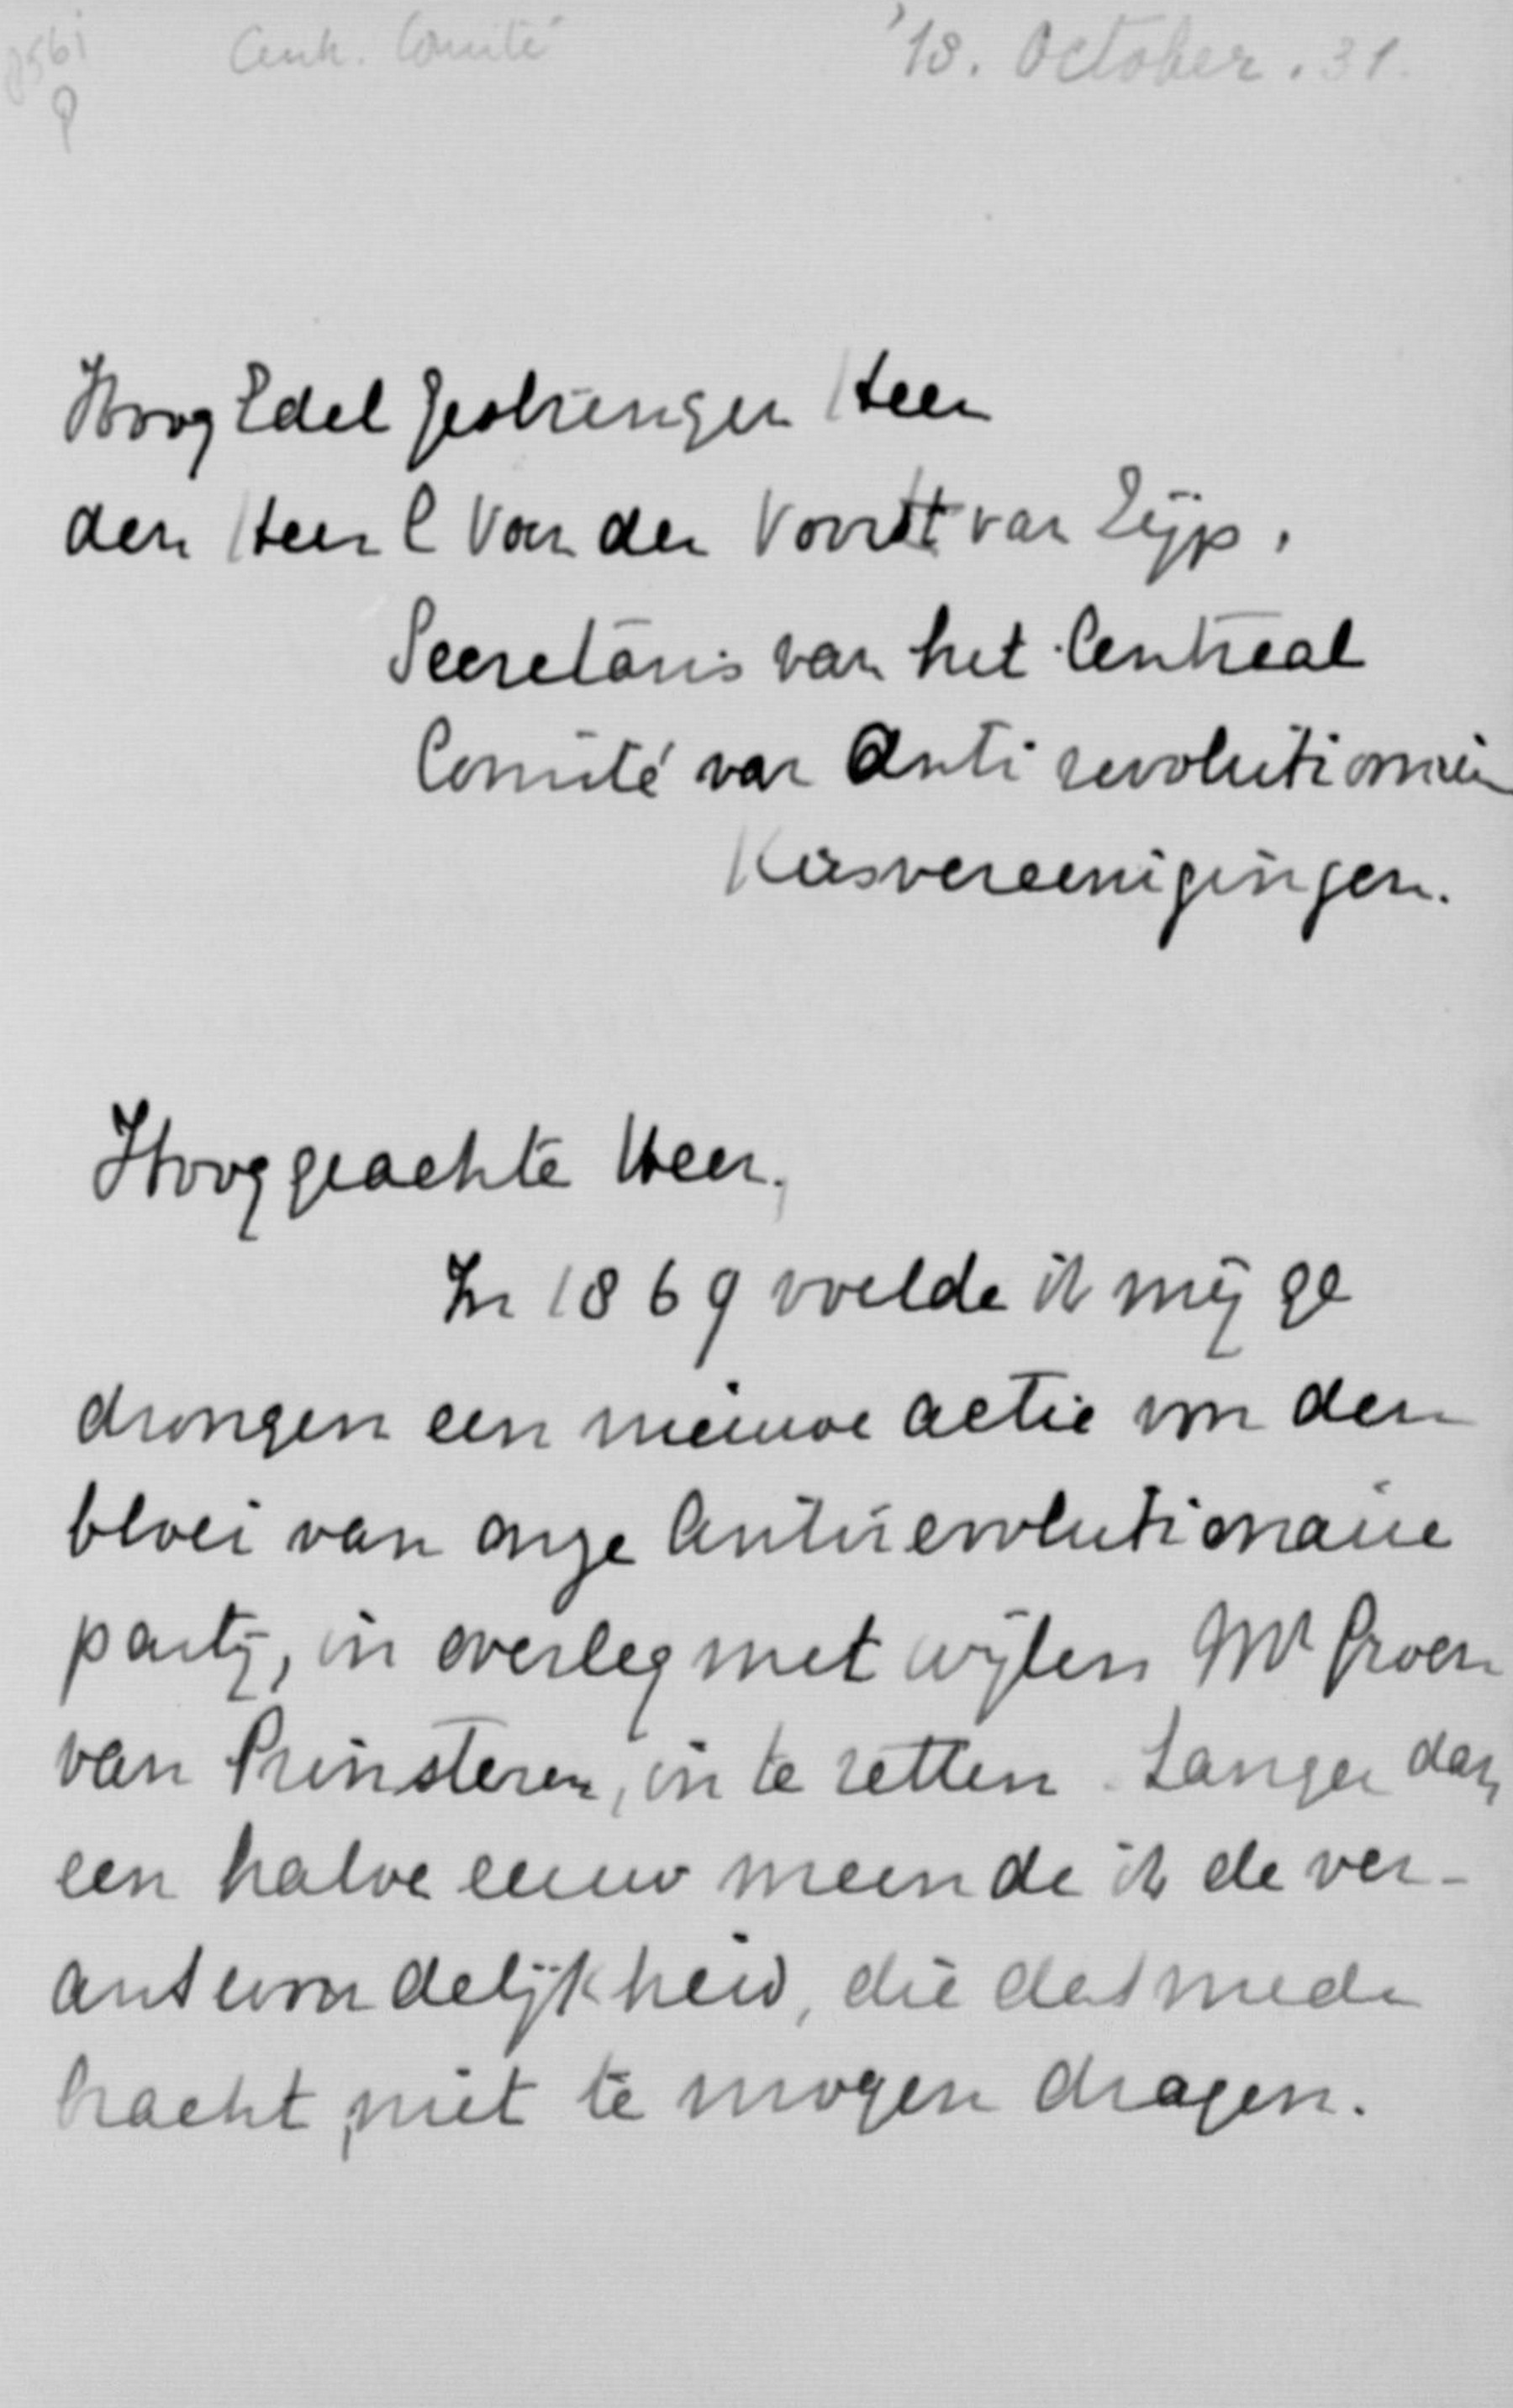 Cent. Comité '18. October. 31.
Hoog Edel Gestrengen Heer
den Heer C Van der Voort van Zijp,
Secretaris van het Centraal
Comité van Anti revolutionair
Kiesvereenigingen.
Hooggeachte Heer,
In 1869 voelde ik mij ge
drongen een nieuwe actie voor den
bloei van onze Antirevolutionaire
partij, in overleg met wijlen Mr Groen
van Prinsteren, in te zetten. Langer dan
een halve eeuw meende ik de ver-
antwoordelijkheid, die dat mede
bracht, niet te mogen dragen.